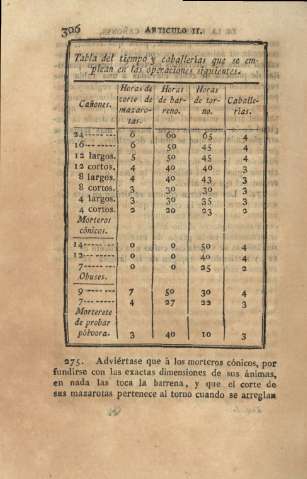 306 ARTICULO II.
Tabla del tiempo y caballerías que se em-
plean en las operaciones siguientes.
Cañones. Horas de corte de mazaro-tas. Horas de bar-reno. Horas de tor-no. Caballe-rías.
24 6 60 65 4
16 6 50 45 4
12 largos. 5 50 45 4
12 cortos. 4 40 40 3
8 largos. 4 40 43 3
8 cortos. 3 30 30 3
4 largos. 3 30 35 3
4 cortos. 2 20 23 2
Morteros
cónicos.
14 0 0 50 4
12 0 0 40 4
7 0 0 25 2
Obuses.
9 7 50 30 4
7 4 27 22 3
Morterete
de probar
pólvora. 3 40 10 3
275. Adviértase que á los morteros cónicos, por
fundirse con las exactas dimensiones de sus ánimas,
en nada las toca la barrena, y que el corte de
sus mazarotas pertenece al torno cuando se arreglan